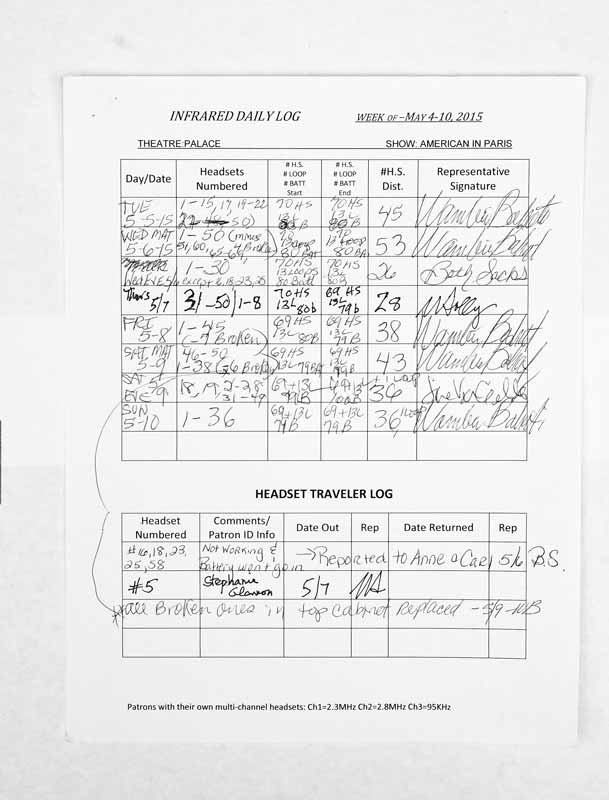 INFRARED DAILY LOG WEEK OF –MAY 4-10, 2015
THEATRE: PALACE SHOW: AMERICAN IN PARIS
Day/Date Headsets Numbered # H.S. # LOOP # BATT Start # H.S. # LOOP # BATT End #H.S. Dist. Representative Signature
TUE 5-5-15 1-15, 17, 19-22 50) 70 HS 13L 80 B 70 HS 13L 80 B 45
WED MAT 5-6-15 1-50 (minus 51, 60, 65-69, 80 Bat 13 Loop 80 BA 53
Wed EVE 5/6 1-30 except 16, 18, 23, 25 70 HS 13 Loops 80 Batt 70 HS 13L 80B 26 Beth Sacks
Thurs 5/7 31-50/1-8 70 HS 13L 80b 69 HS 13L 79b 28
FRI 5-8 1-45 (-7 Broken) 69 HS 13L 80B 69 HS 13L 79B 38
SAT MAT 5-9 46-50 1-38 69 HS 13L 79B 69 HS 13L 79B 43
SAT EVE 5-9 18, 19, 2-28 31-49 69+13L 79B 36 + 1 Loop
SUN 5-10 1-36 69+13L 79B 69+13L 79B 36, 1 Loop
HEADSET TRAVELER LOG
Headset Numbered Comments/ Patron ID Info Date Out Rep Date Returned Rep
#16,18,23, 25,58 Not working & Battery won't go in → Reported to Anne & Carl 5/6 B.S.
#5 Stephanie 5/7
*all Broken ones in top cabinet Replaced - 5/9 - WB
Patrons with their own multi-channel headsets: Ch1=2.3MHz Ch2=2.8MHz Ch3=95KHz